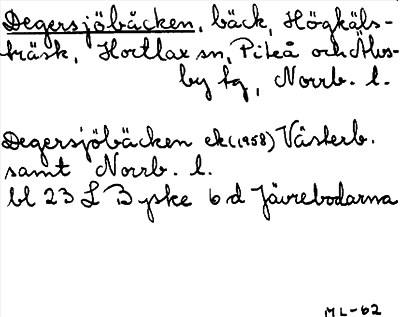 Degersjöbäcken, bäck, Högkäls-
träsk, Hortlax sn, Piteå och Älvs-
by tg, Norrb. l.
Degersjöbäcken ek (1958) Västerb.
samt Norrb. l.
bl 23 L Byske 6 d Jävrebodarna
ML-62